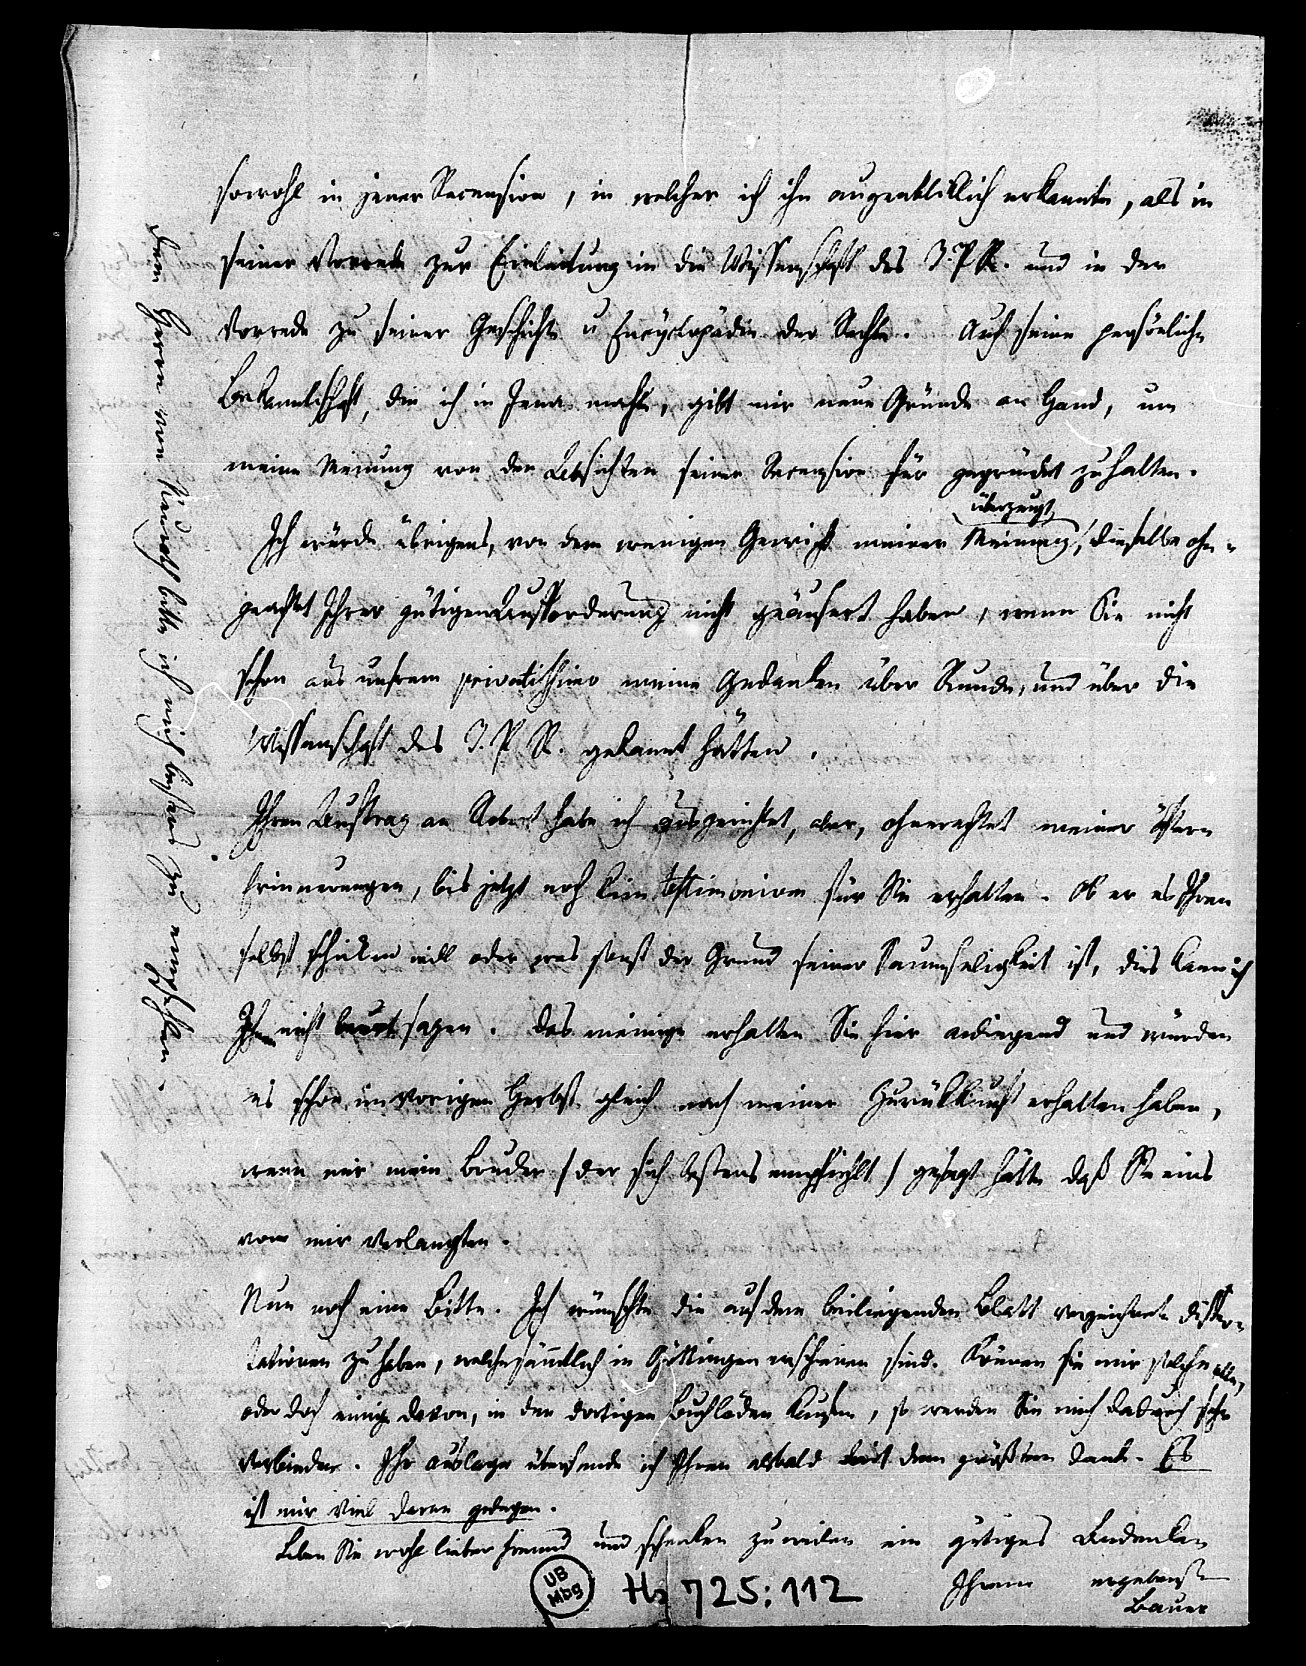 sowohl in jener Recension, in welcher ich ihn augenbliklich erkannte, als in
seiner Vorrede zur Einleitung in die Wissenschaft des T. P. R. und in der
Vorrede zu seiner Geschichte u Encyclopädie der Rechte. Auch seine persönliche
Bekanntschaft, die ich in Jena machte, gibt mir neue Gründe an Hand, um
meine Meinung von den Absichten seiner Recension für gegründet zu halten.
überzeugt,
Ich würde übrigens, von dem wenigen Gewicht meiner Meinung, dieselbe ohn-
geachtet Ihrer gütigen Aufforderung nicht geäusert haben, wenn Sie nicht
schon aus unsrem meine Gedanken über Runde, und über die
Wissenschaft des T. P. R. gekannt hätten.
Ihren Auftrag an habe ich ausgerichtet, aber, ohnerachtet meiner öftern
Erinnerungen, bis jetzt noch kein testimonium für Sie erhalten. Ob er es Ihnen
selbst schicken will oder was sonst der Grund seiner Saumseligkeit ist, dies kann ich
Ihnen nicht sagen. Das meinige erhalten Sie hier anliegend und würden
es schon im vorigen Herbst gleich nach meiner Zurükkunft erhalten haben,
wenn mir mein Bruder / der sich bestens empfiehlt / gesagt hätte daß Sie eins
von mir verlangten.
Nun noch eine Bitte. Ich wünschte die auf dem beiliegenden Blatt verzeichnete Disser-
tationen zu haben, welche sämtlich in Göttingen erschienen sind. Können Sie mir solche alle,
oder doch einige davon, in den dortigen Buchläden kaufen, so werden Sie mich dadurch sehr
verbinden. Ihre Auslage übersende ich Ihnen alsbald mit dem größten Dank. Es
ist mir viel daran gelegen.
Leben Sie wohl lieber Freund und schenken zuweilen ein gütiges Andenken
Ihrem ergebenst
Bauer
dem Herrn von bitte ich mich bestens zu empfehlen.
UB
Mbg
Hs 725:112